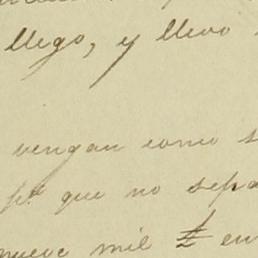 llego, y llevo
vengan como s
pª que no sepa
nueve mil £ en